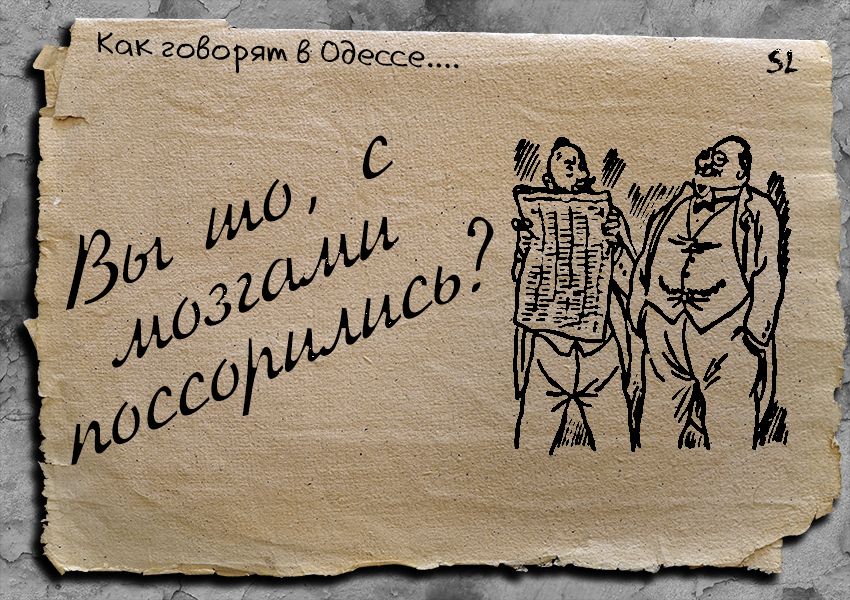 Как говорят в Одессе....
SL
Вы шо, с
мозгами
поссорились?